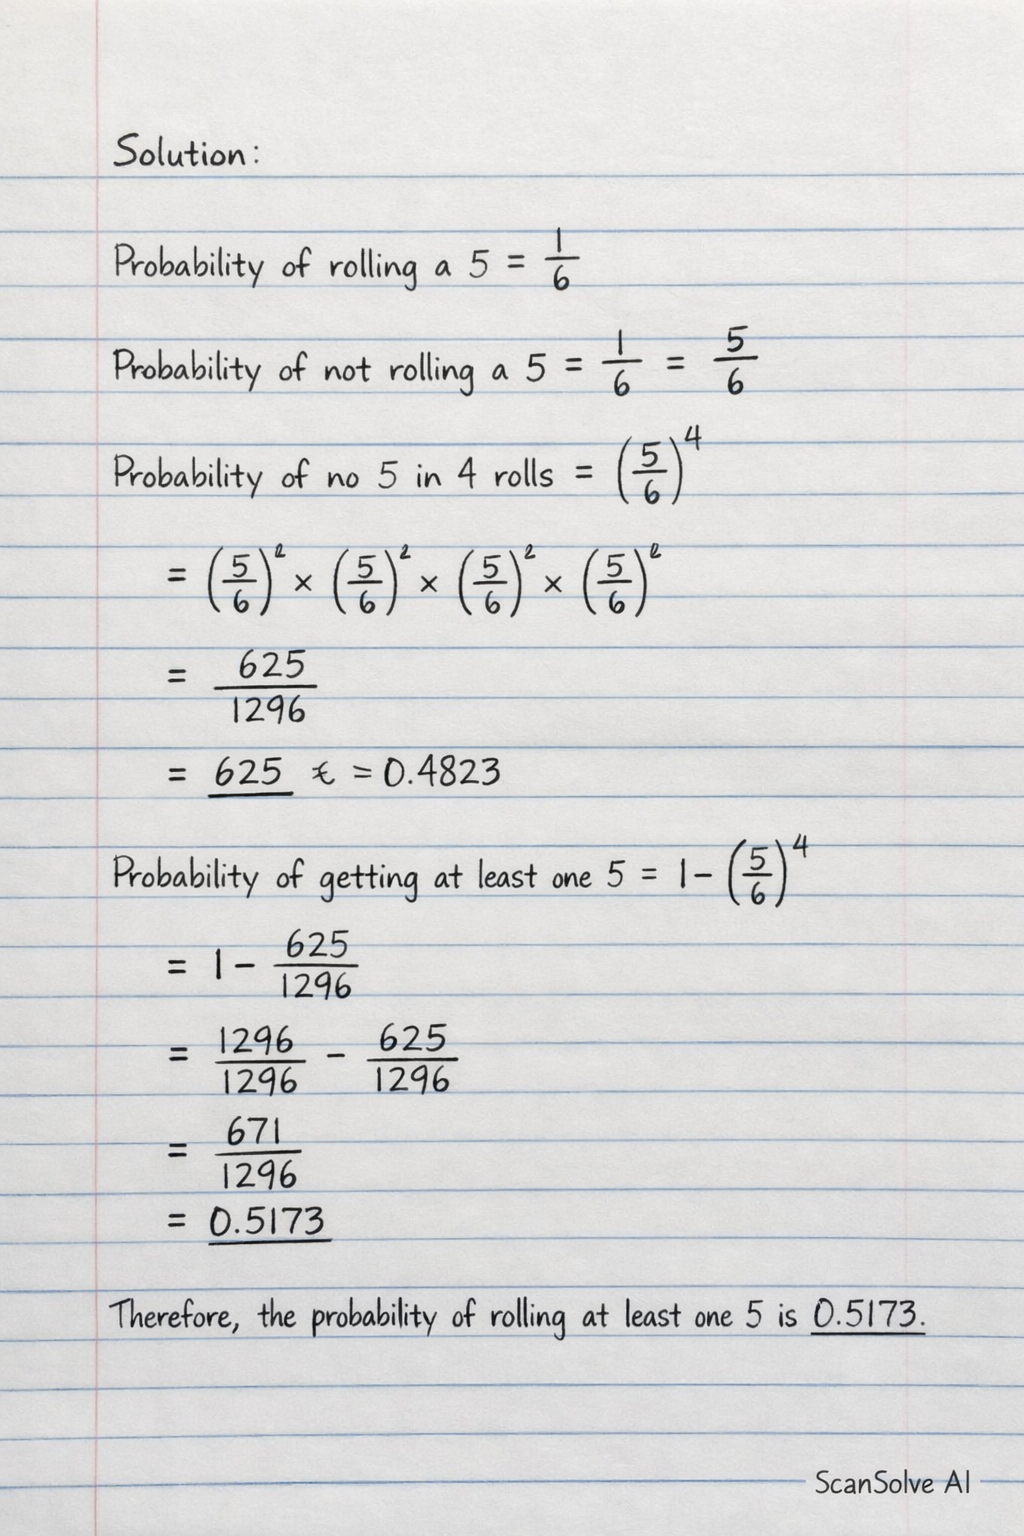 Solution:
Probability of rolling a 5 = 1/6
Probability of not rolling a 5 = 1/6 = 5/6
Probability of no 5 in 4 rolls = (5/6)^4
= (5/6)² × (5/6)² × (5/6)² × (5/6)²
= 625/1296
= 625 = 0.4823
Probability of getting at least one 5 = 1 - (5/6)^4
= 1 - 625/1296
= 1296/1296 - 625/1296
= 671/1296
= 0.5173
Therefore, the probability of rolling at least one 5 is 0.5173.
ScanSolve AI